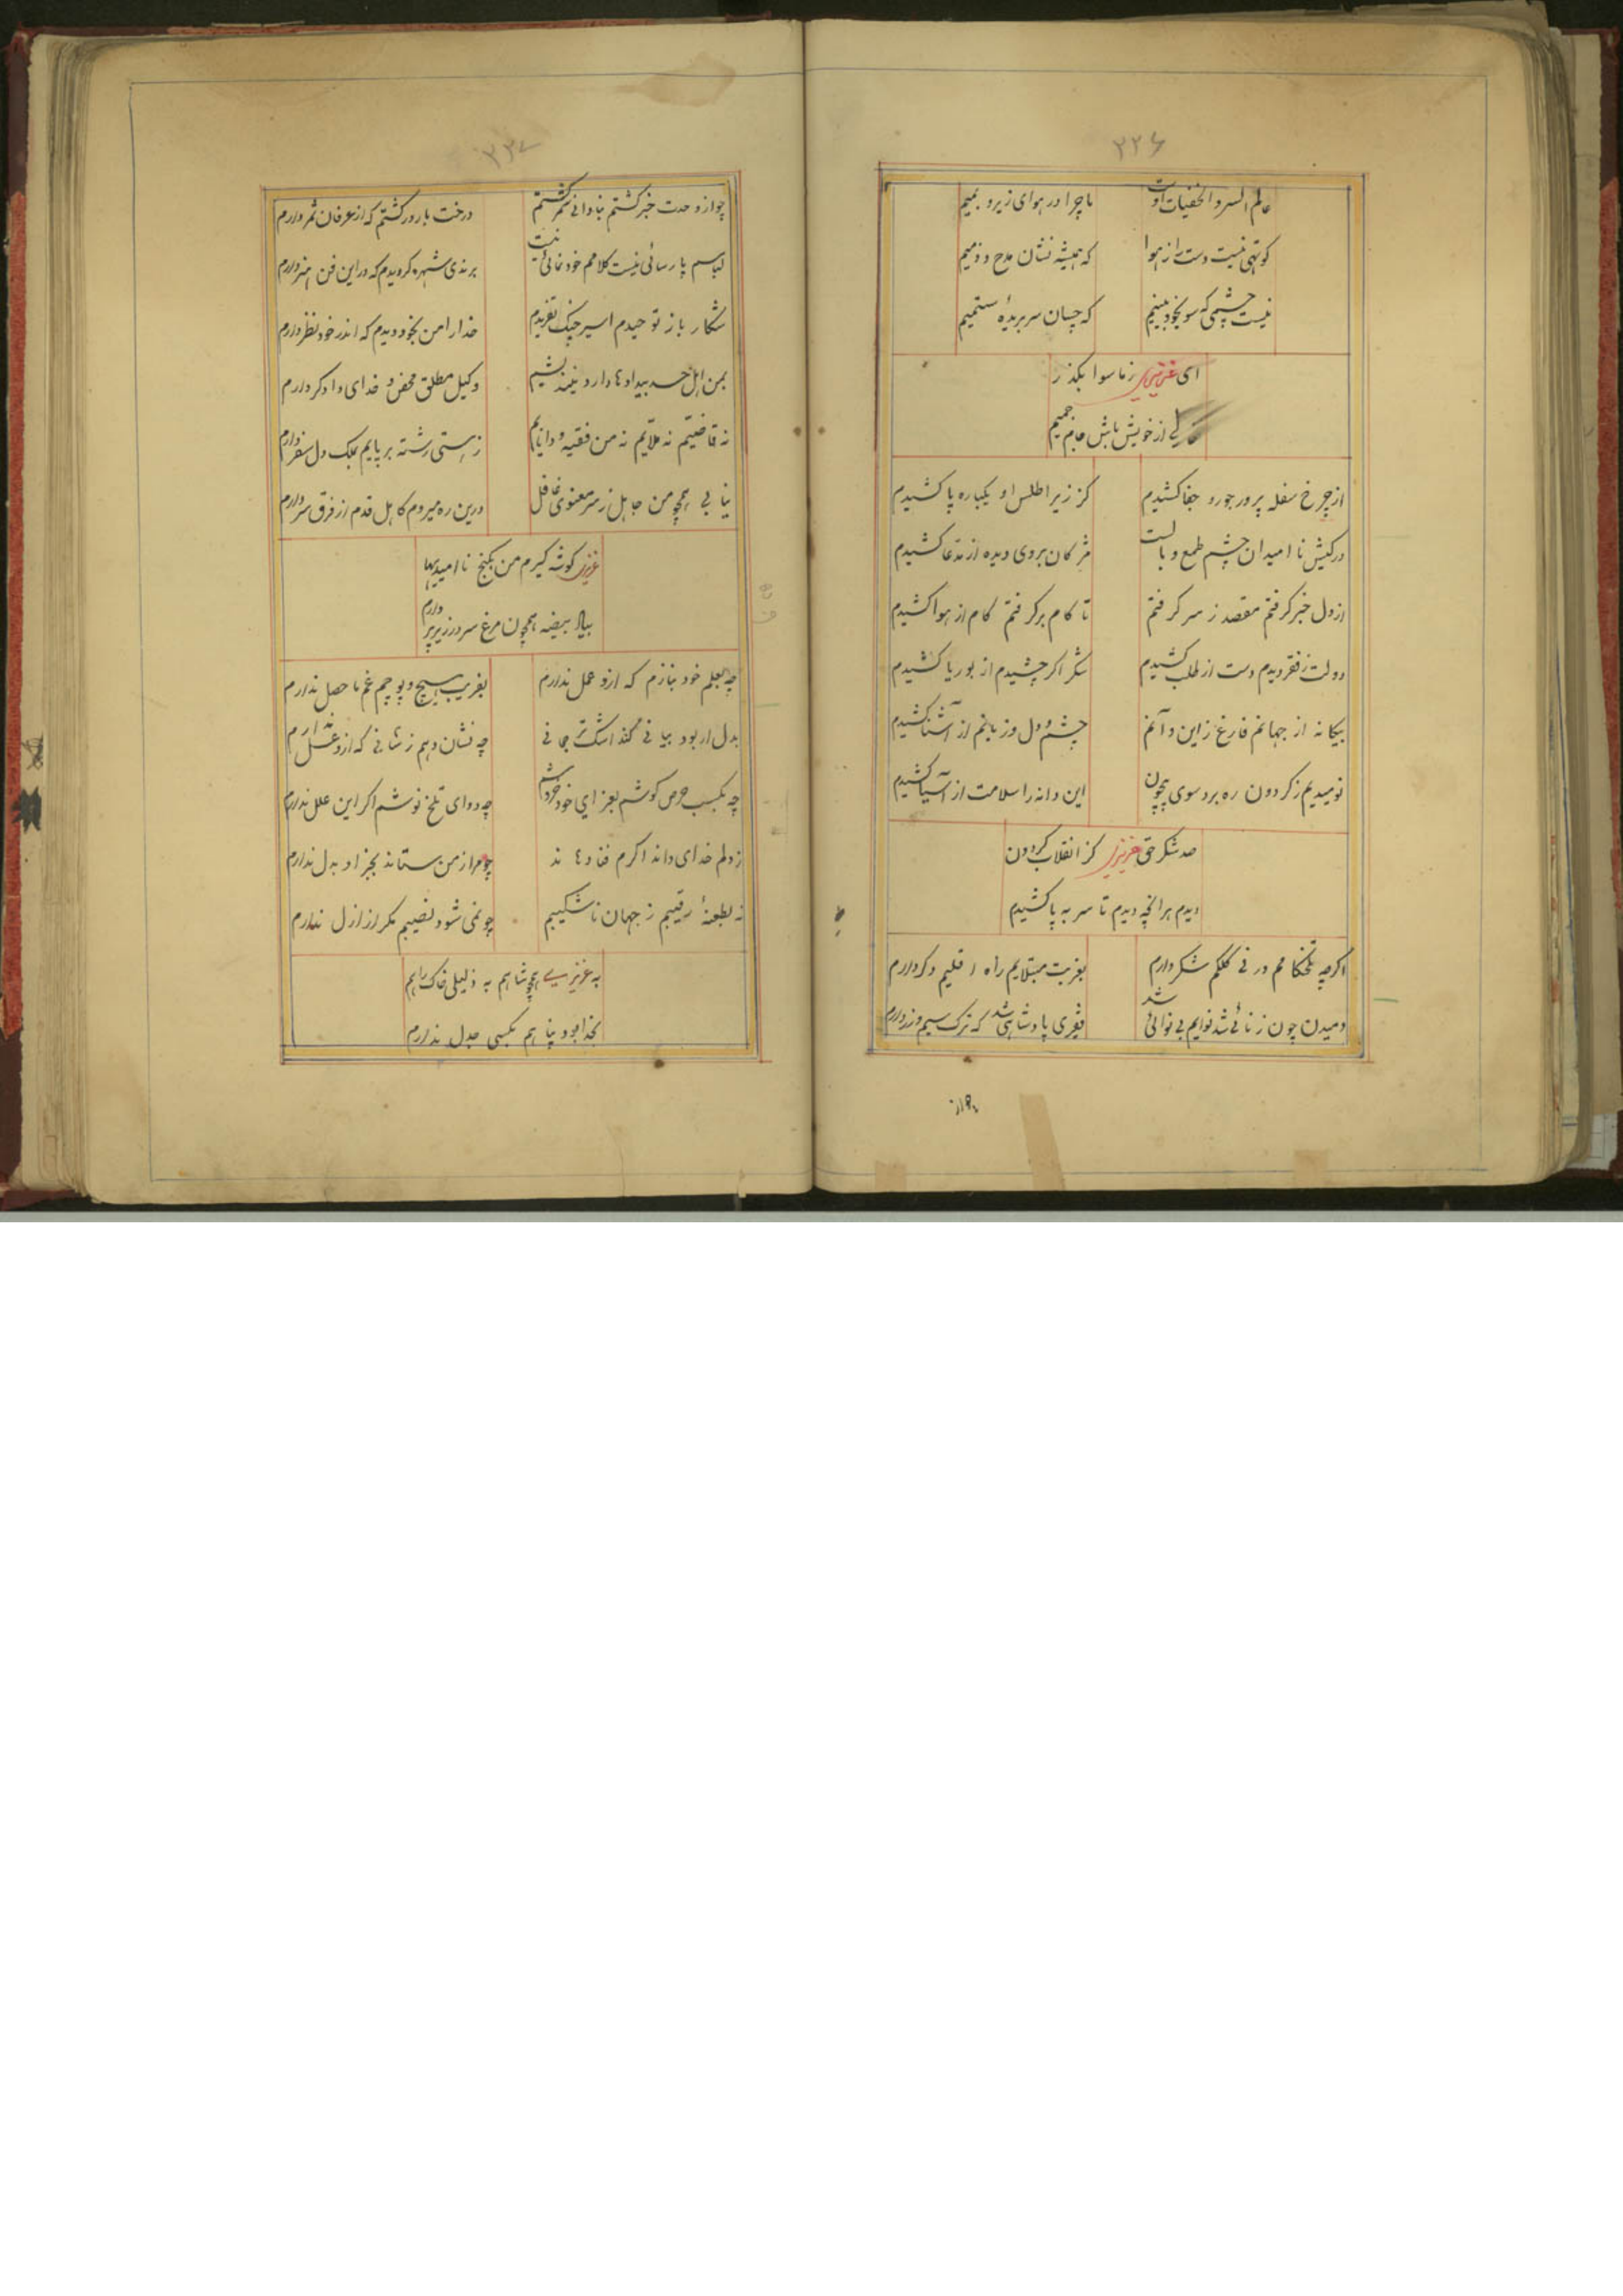 ۲۲۶
عالم السر و الخفیات اوست ما چرا در هوای زیر و بمیم
کوتهی نیست دست از هوا که همیشه نشان مدح و ذمیم
نیست چشمی که سو بخود بینیم که چسان سر بریدهٔ ستمیم
ای عزیزی ز ما سوا بگذر
از خویش باش جام جمیم
از چرخ سفله پرور جور و جفا کشیدم کز زیر اطلس او یکباره پا کشیدم
در کیش نا امیدان چشم طمع وبالست مژکان بروی دیده از مدعا کشیدم
از دل خبر گرفتم مقصد ز سر گرفتم تا کام بر گرفتم کام از هوا کشیدم
دولت ز فقر دیدم دست از طلب کشیدم شکر اگر چشیدم از بوریا کشیدم
بیگانه از جهانم فارغ ز این و آنم چشم و دل و زبانم از آشنا کشیدم
نومیدیم ز گردون ره برد سوی بیچون این دانه را سلامت از آسیا کشیدم
صد شکر حق عزیزی کز انقلاب گردون
دیدم هر آنچه دیدم تا سر به پا کشیدم
اگرچه تلخکامم در نی کلکم شکر دارم بغربت مبتلایم راه اقلیم دگر دارم
دمیدن چون ز نائی شد نوایم بی نوائی شد فقری پادشاهی شد که ترک سیم و زر دارم
۲۲۷
چو از وحدت خبر گشتم بنادانی سمر گشتم درخت بارور گشتم که از عرفان ثمر دارم
لباسم پارسائی نیست کلامم خود نمائی نیست برندی شهره گردیدم که در این فن هنر دارم
شکار باز توحیدم اسیر چنگ تفریدم خدا را من بخود دیدم که اندر خود نظر دارم
بمن اهل حسد بیدادها دارد نیندیشیم وکیل مطلق محض و خدای دادگر دارم
نه قاضیم نه ملایم نه من فقیه و دانایم ز هستی رشته بر پایم بملک دل سفر دارم
نیابی همچو من جاهل ز سر معنوی غافل درین ره میروم کاهل قدم از فرق سر دارم
عزیزی گوشه گیرم من بکنج نا امیدیها
ببالا بیضه همچون مرغ سر در زیر پر دارم
چه بعلم خود بنازم که ازو عمل ندارم بفریب هیچ و پوچیم غم ما حصل ندارم
بدل ار بود بیانی کند اشک ترجمانی چه نشان دهم ز شانی که ازو عسل ندارم
چه بکسب حرص کوشم بعزای خود خروشم چه دوای تلخ نوشم اگر این علل ندارم
ز ولم خدای داند اگرم فنا دهاند چو مرا ز من ستاند بجز او بدل ندارم
نه بطعنهٔ رقیبم ز جهان ناشکیبم چو نمی شود نصیبم مگر از ازل ندارم
به عزیزی همچو شاهم به ذلیلی خاک راهم
بخدا بود پناهم بکسی جدل ندارم